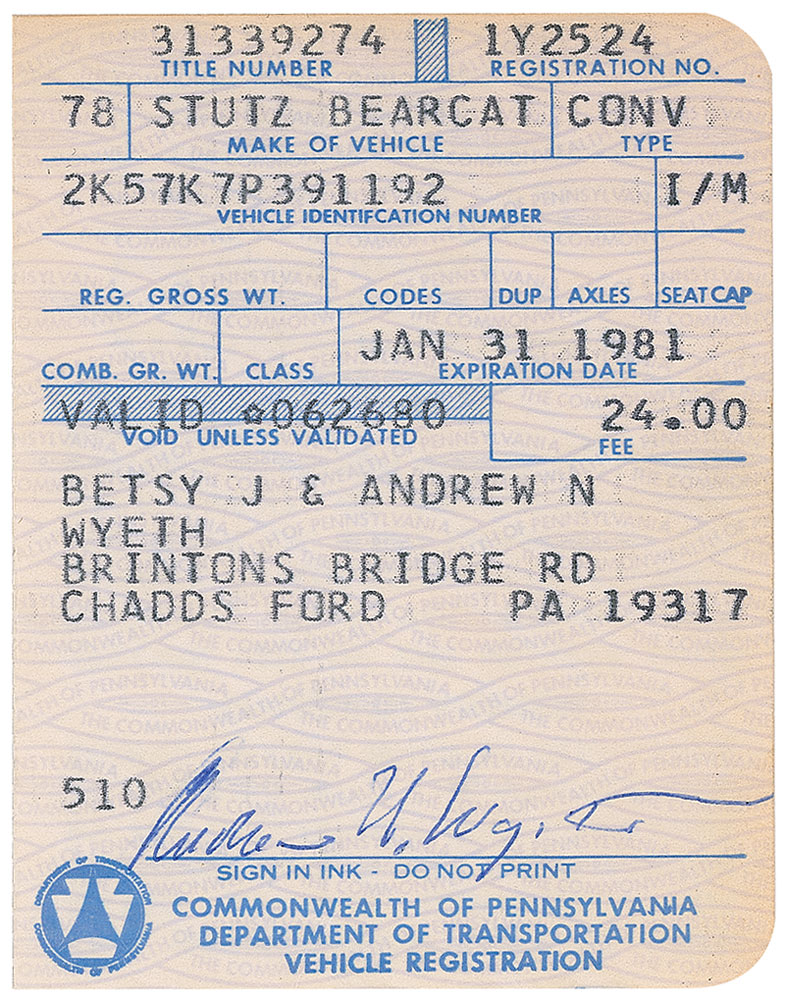 31339274 1Y2524
TITLE NUMBER REGISTRATION NO.
78 STUTZ BEARCAT CONV
MAKE OF VEHICLE TYPE
2K57K7P391192 I/M
VEHICLE IDENTIFCATION NUMBER
REG. GROSS WT. CODES DUP AXLES SEAT CAP
JAN 31 1981
COMB. GR. WT. CLASS EXPIRATION DATE
VALID ☆062680 24.00
VOID UNLESS VALIDATED FEE
BETSY J & ANDREW N
WYETH
BRINTONS BRIDGE RD
CHADDS FORD PA 19317
510
Andrew N. Wyeth
SIGN IN INK - DO NOT PRINT
DEPARTMENT OF TRANSPORTATION
COMMONWEALTH OF PENNSYLVANIA
COMMONWEALTH OF PENNSYLVANIA
DEPARTMENT OF TRANSPORTATION
VEHICLE REGISTRATION